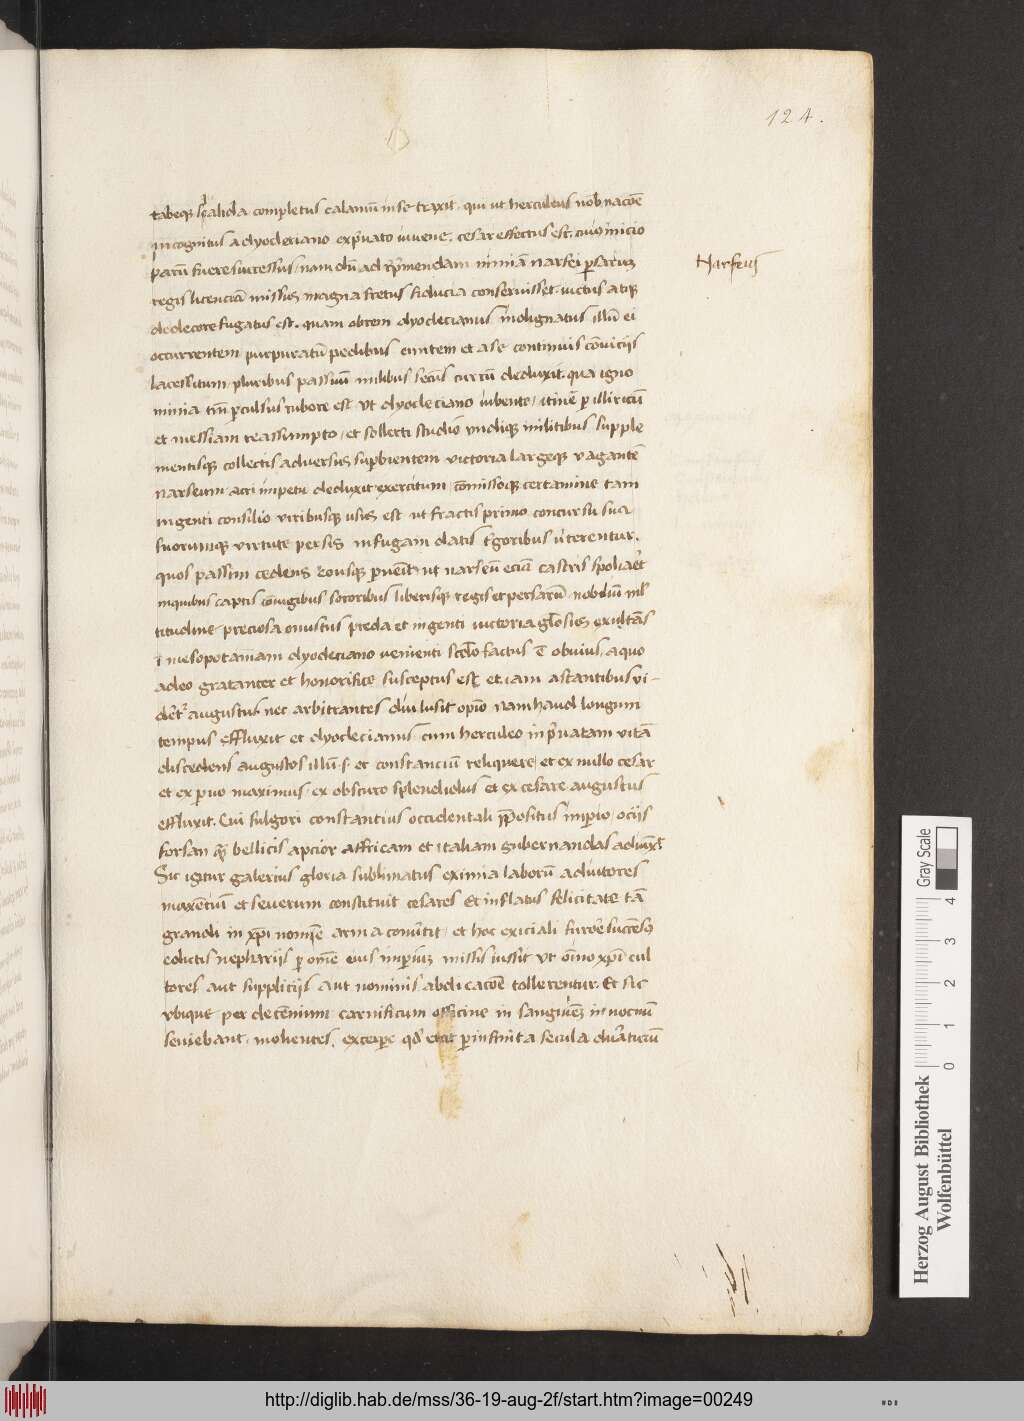 124.
tabeq₃ scalida completus calamũ in se traxit. qui ut herculeus nõb nacõe
incognitus a dyocleriano exp̃uato iuuene. cesar effectus est. cuiꝰ inicio
parũ fuere successus / nam dũ ad rep̃mendam nimiã narsei persarum
Narseus
regis licenciã missus magna fretus fiducia conseruisset. uictus atq₃
dedecore fugatus est. quam obrem dyoclecianus indignatus illũ ei
occurrentem purpuratũ pedibus euntem et a se continuis cõuiciis
lacessitum / pluribus passuũ milibus secus currũ deduxit. qua igno
minia tm̃ perculsus rubore est ut dyocleciano iubente / itinẽ p illiricũ
et messiam reassumpto / et sollerti studio undiq₃ militibus supple
mentisq₃ collectis aduersus supbientem victoria largeq₃ vagantẽ
narseum. acri impetu deduxit exercitum / cõmissoq₃ certamine tam
ingenti consilio viribusq₃ usus est ut fractis primo concursu sua
suorumq₃ virtute persis in fugam datis tergoribus ũterentur.
quos passim cedens eousq₃ puẽit ut narseũ eciã castris spoliaret
in quibus captis cõiugibus sororibus liberisq₃ regis et persarũ nobiliũ ml̃
titudine preciosa onustus preda et ingenti uictoria gl̃osus exultãs
ĩ mesopotamiam dyocleciano uenienti sc̃do factus ẽ obuius / a quo
adeo gratanter et honorifice susceptus est et iam astantibus vi-
der̃t augustus. nec arbitrantes diu lusit opio nam haud longum
tempus effluxit et dyoclecianus cum herculeo in p̃uatam vitã
discedens augustos illũ .s. et constanciũ reliquere / et ex nullo cesar
et ex paruo maximus / ex obscuro splendidus et ex cesare augustus
effluxit. Cui fulgori constantius occidentali p̃positus imperio / ociis
forsan q̃ bellicis apcior affricam et italiam gubernandas adiũxit
Sic igitur galerius gloria sublimatus eximia laborũ adiutores
maxẽtiũ et seuerum constituit cesares Et inflatus felicitate tã
grandi in xp̃i nomẽ arma cõuertit / et hoc exiciali furore succẽsus
edictis nephariis p om̃e eius imperiũ missis iussit ut oĩno xp̃i cul
tores aut suppliciis aut nominis abdicacõe tollerentur. Et sic
ubique per decenium carnificum officine in sanguinẽ innocuũ
seuiebant. molientes. excerpe qd̃ erat p infinita secula duraturũ
Herzog August Bibliothek
Wolfenbüttel
Gray Scale
0 1 2 3 4
http://diglib.hab.de/mss/36-19-aug-2f/start.htm?image=00249